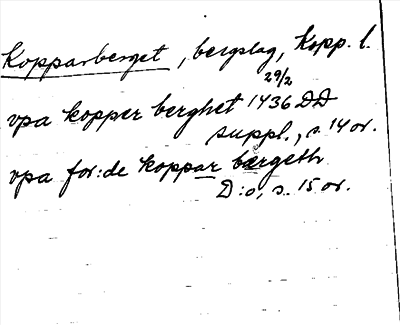 Kopparberget, bergslag, Kopp. l.
29/2
vpa kopper berghet 1436 DD
suppl., s. 14 or.
vpa for:de koppar bærgeth
D:o, s. 15 or.